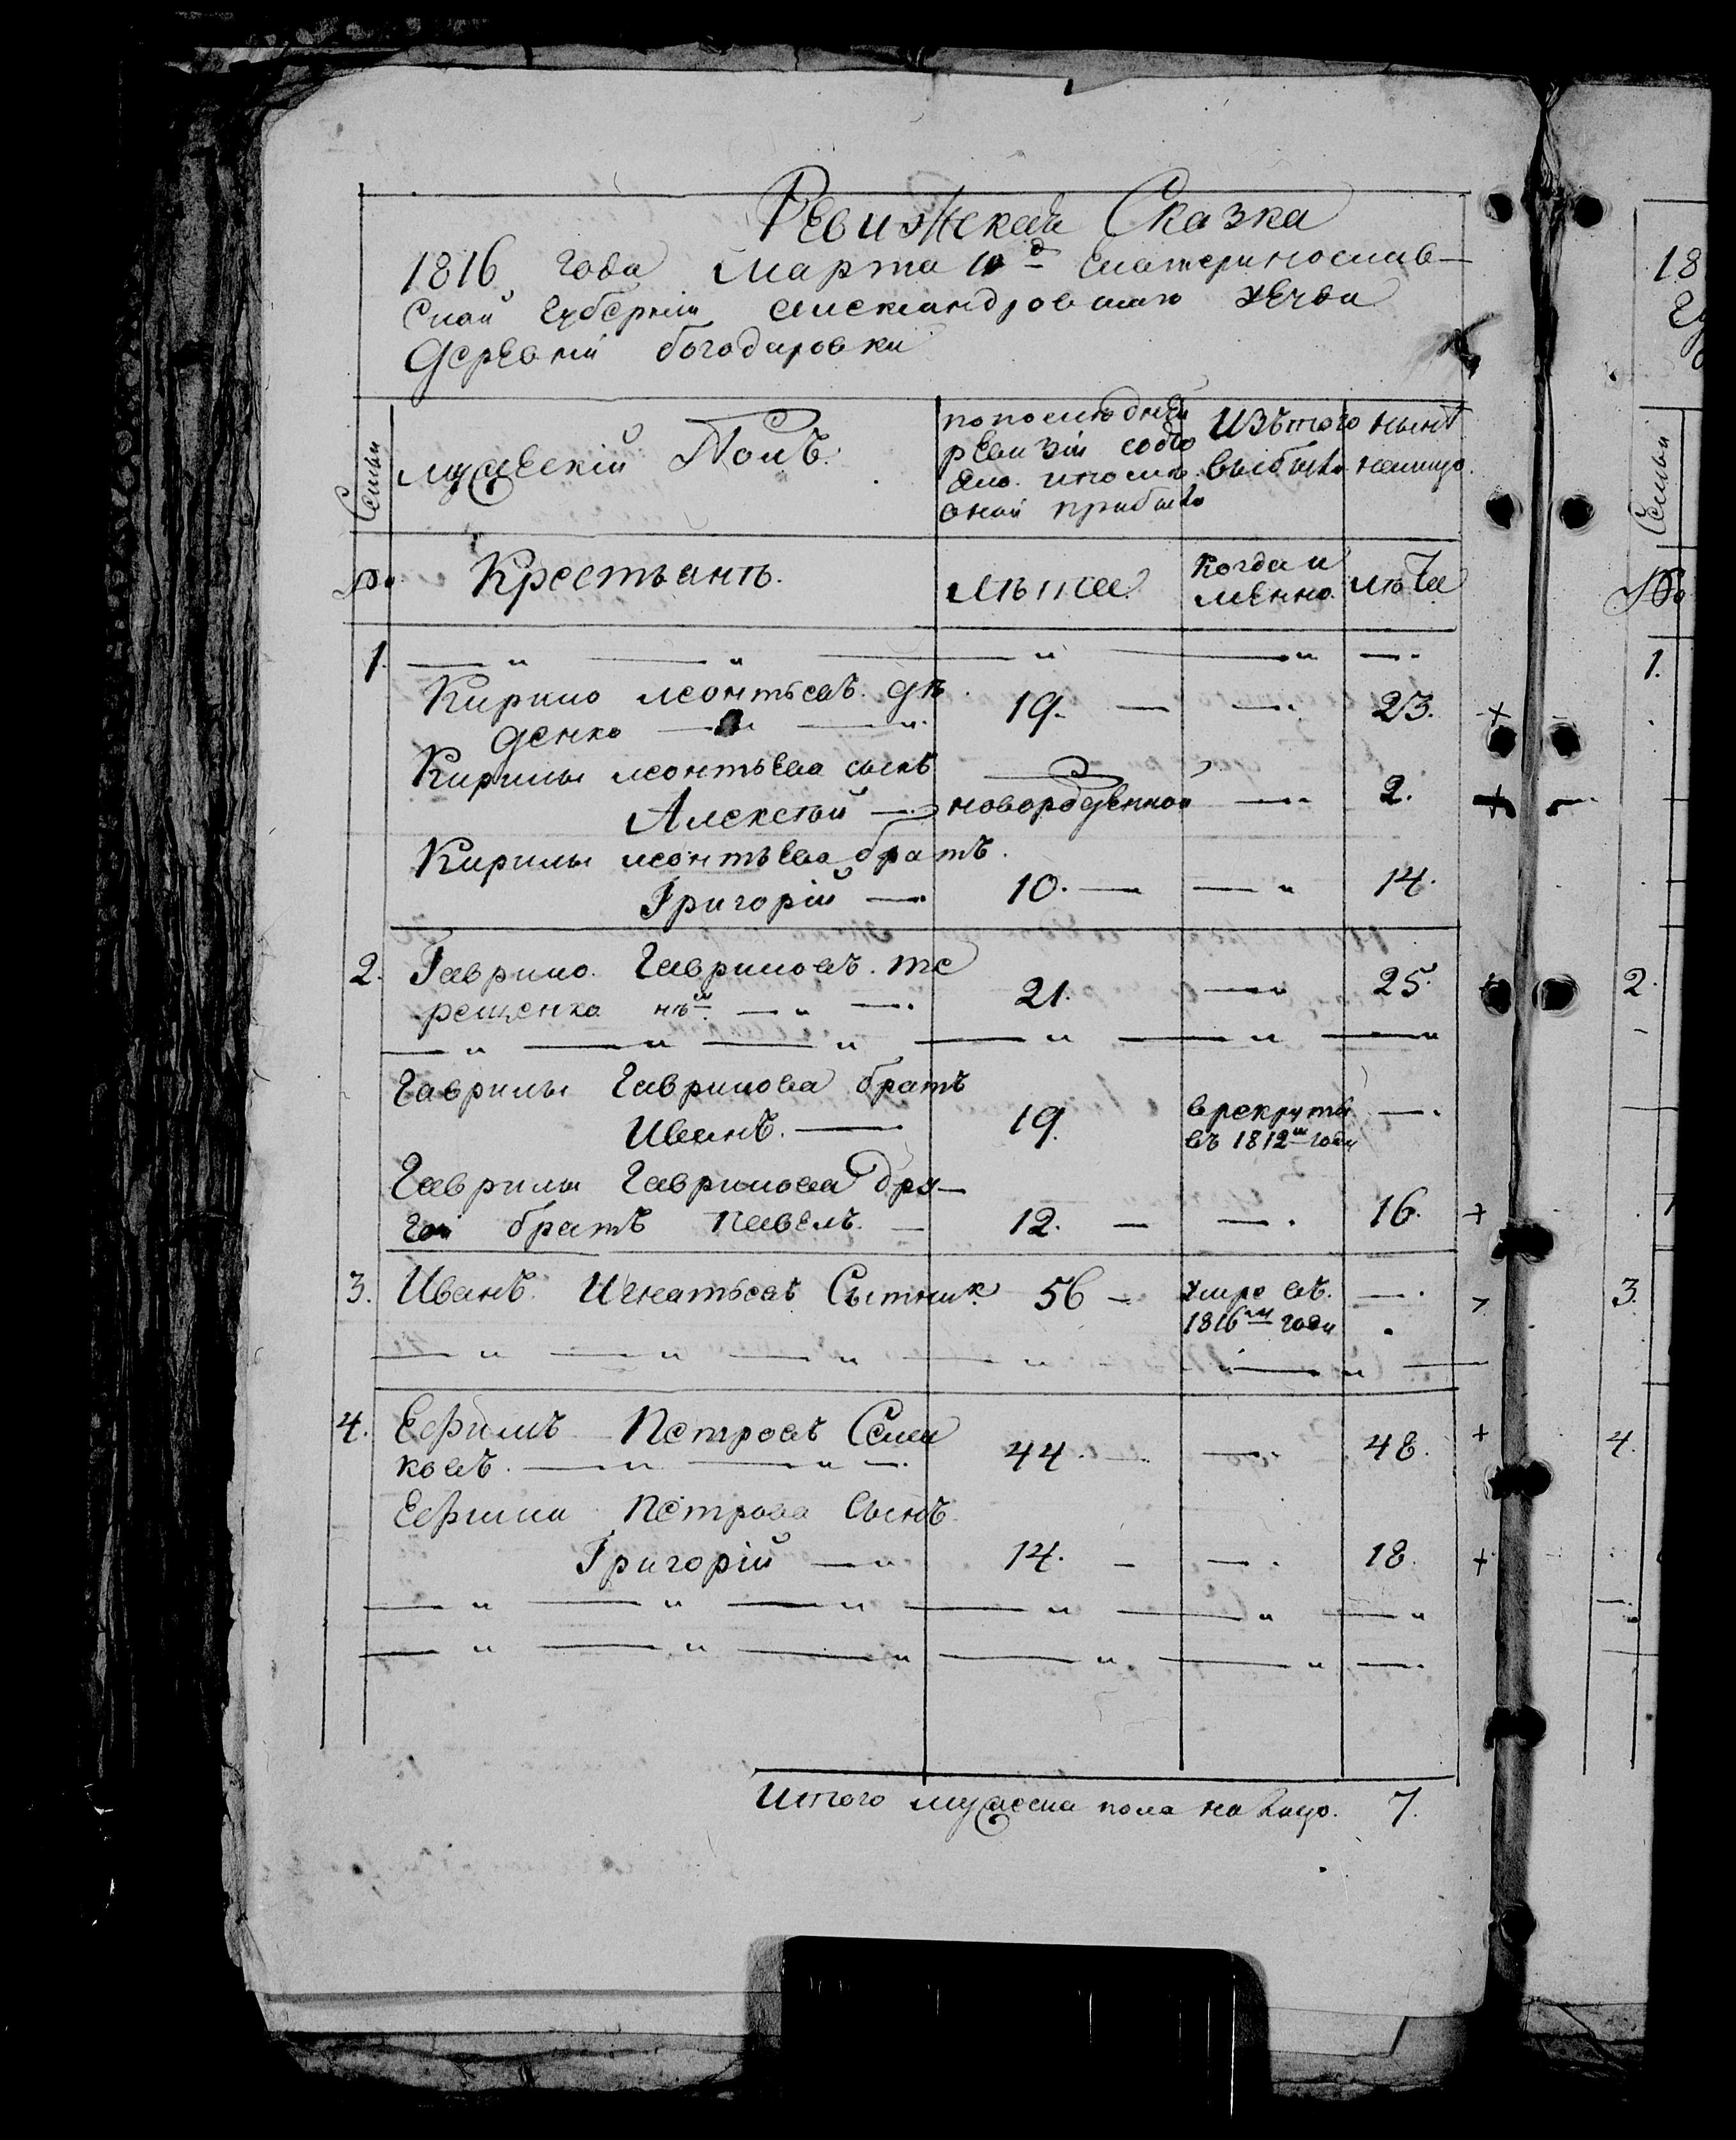 Ревижская Сказка
1816 года Марта 10 д Екатеринослав-
Ской Губерніи Александровшаго уезда
Деревни богодаровки
Семьи
мужескій Полъ.
попоследней
ревизіи состо
яло. ипосле
оной прибыло
Изътого
выбыло
ныне
налицо.
№.
Крестьянъ.
лѣта
когда и
менно.
лѣта
1.
Кирило леонтьевъ. дѣ
денко
19.
23.
Кирилы леонтьева сынъ
Алексѣй
новорожденной
2.
Кирилы леонтьева братъ.
Григорій
10.
14.
2. Гаврило. Гавриловъ. те
рещенко
21.
25.
Гаврилы Гаврилова братъ
Иванъ.
19.
врекруты
въ 1812м годи
Гаврилы Гаврилова дру-
гой братъ павелъ.
12.
16.
3. Иванъ. Игнатьевъ Сытник.
56
умре въ.
1816м годи
4. Ефимъ Петровъ Сема
ковъ.
44.
48.
Ефима Петрова Сынъ.
Григорій
14.
18.
Итого мужеска пола на лицо. 7.
18
Семьи
№
1.
2.
3.
4.